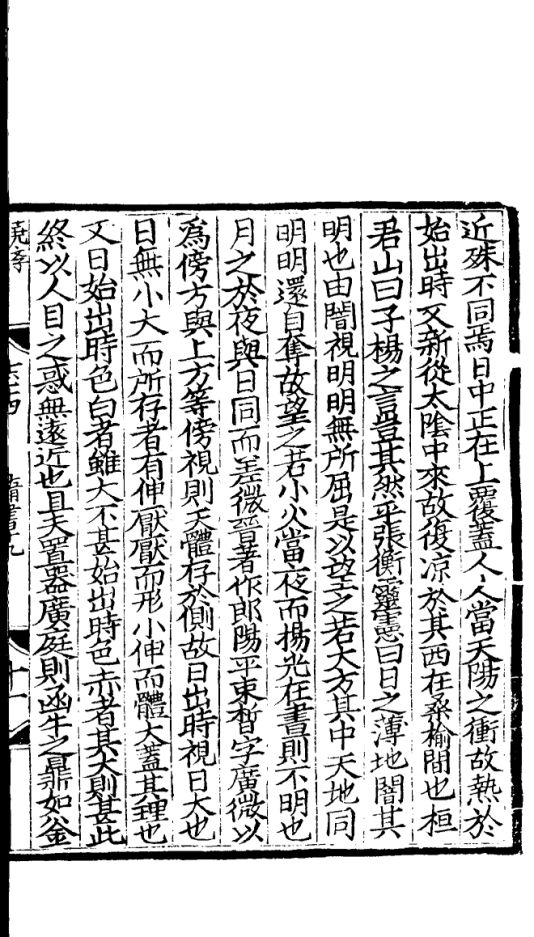 近殊不同焉日中正在上覆蓋人人當天陽之衝故熱於
始出時又新從太陰中來故復凉於其西在桑榆間也桓
君山曰子楊之言豈其然乎張衡靈憲曰日之薄地闇其
明也由闇視明明無所屈是以望之若大方其中天地同
明明還自奪故望之若小火當夜而楊光在晝則不明也
月之於夜與日同而差微晉著作郎陽平束晳字廣微以
爲傍方與上方等傍視則天體存於側故日出時視日大也
日無小大而所存者有伸厭厭而形小伸而體大蓋其理也
又日始出時色白者雖大不甚始出時色赤者其大則甚此
終以人目之惑無遠近也且天置器廣庭則函牛之鼎如釡
志四
十一